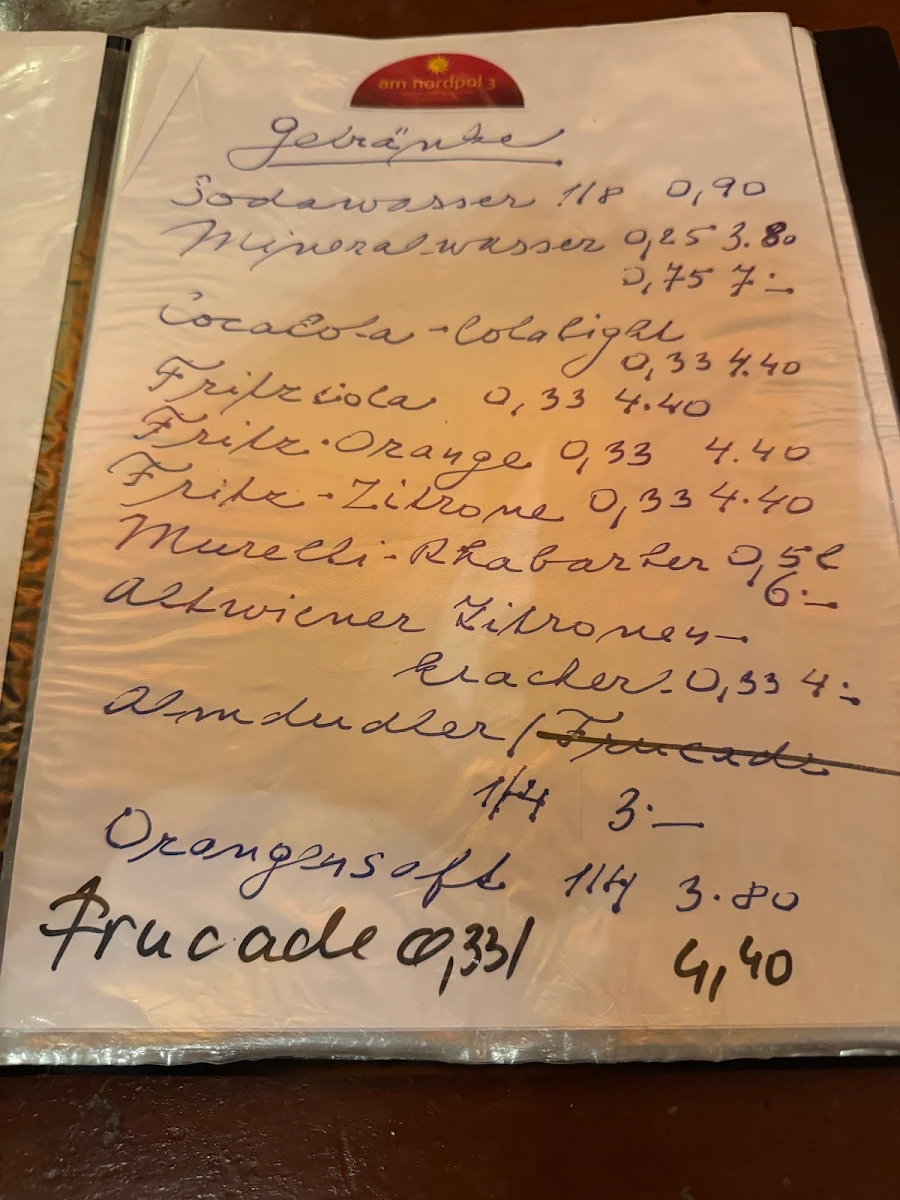 am nordpol 3
Getränke
Sodawasser 1/8 0,90
Mineralwasser 0,25 3.80
0,75 7.–
CocaCola - Cola Light
0,33 4.40
Fritz Cola 0,33 4.40
Fritz-Orange 0,33 4.40
Fritz-Zitrone 0,33 4.40
Murelli-Rhabarber 0,5l
6.–
Altwiener Zitronen-
kracher 0,33 4.–
Almdudler / Frucade
1/4 3.–
Orangensaft 1/4 3.80
Frucade 0,33l 4,40